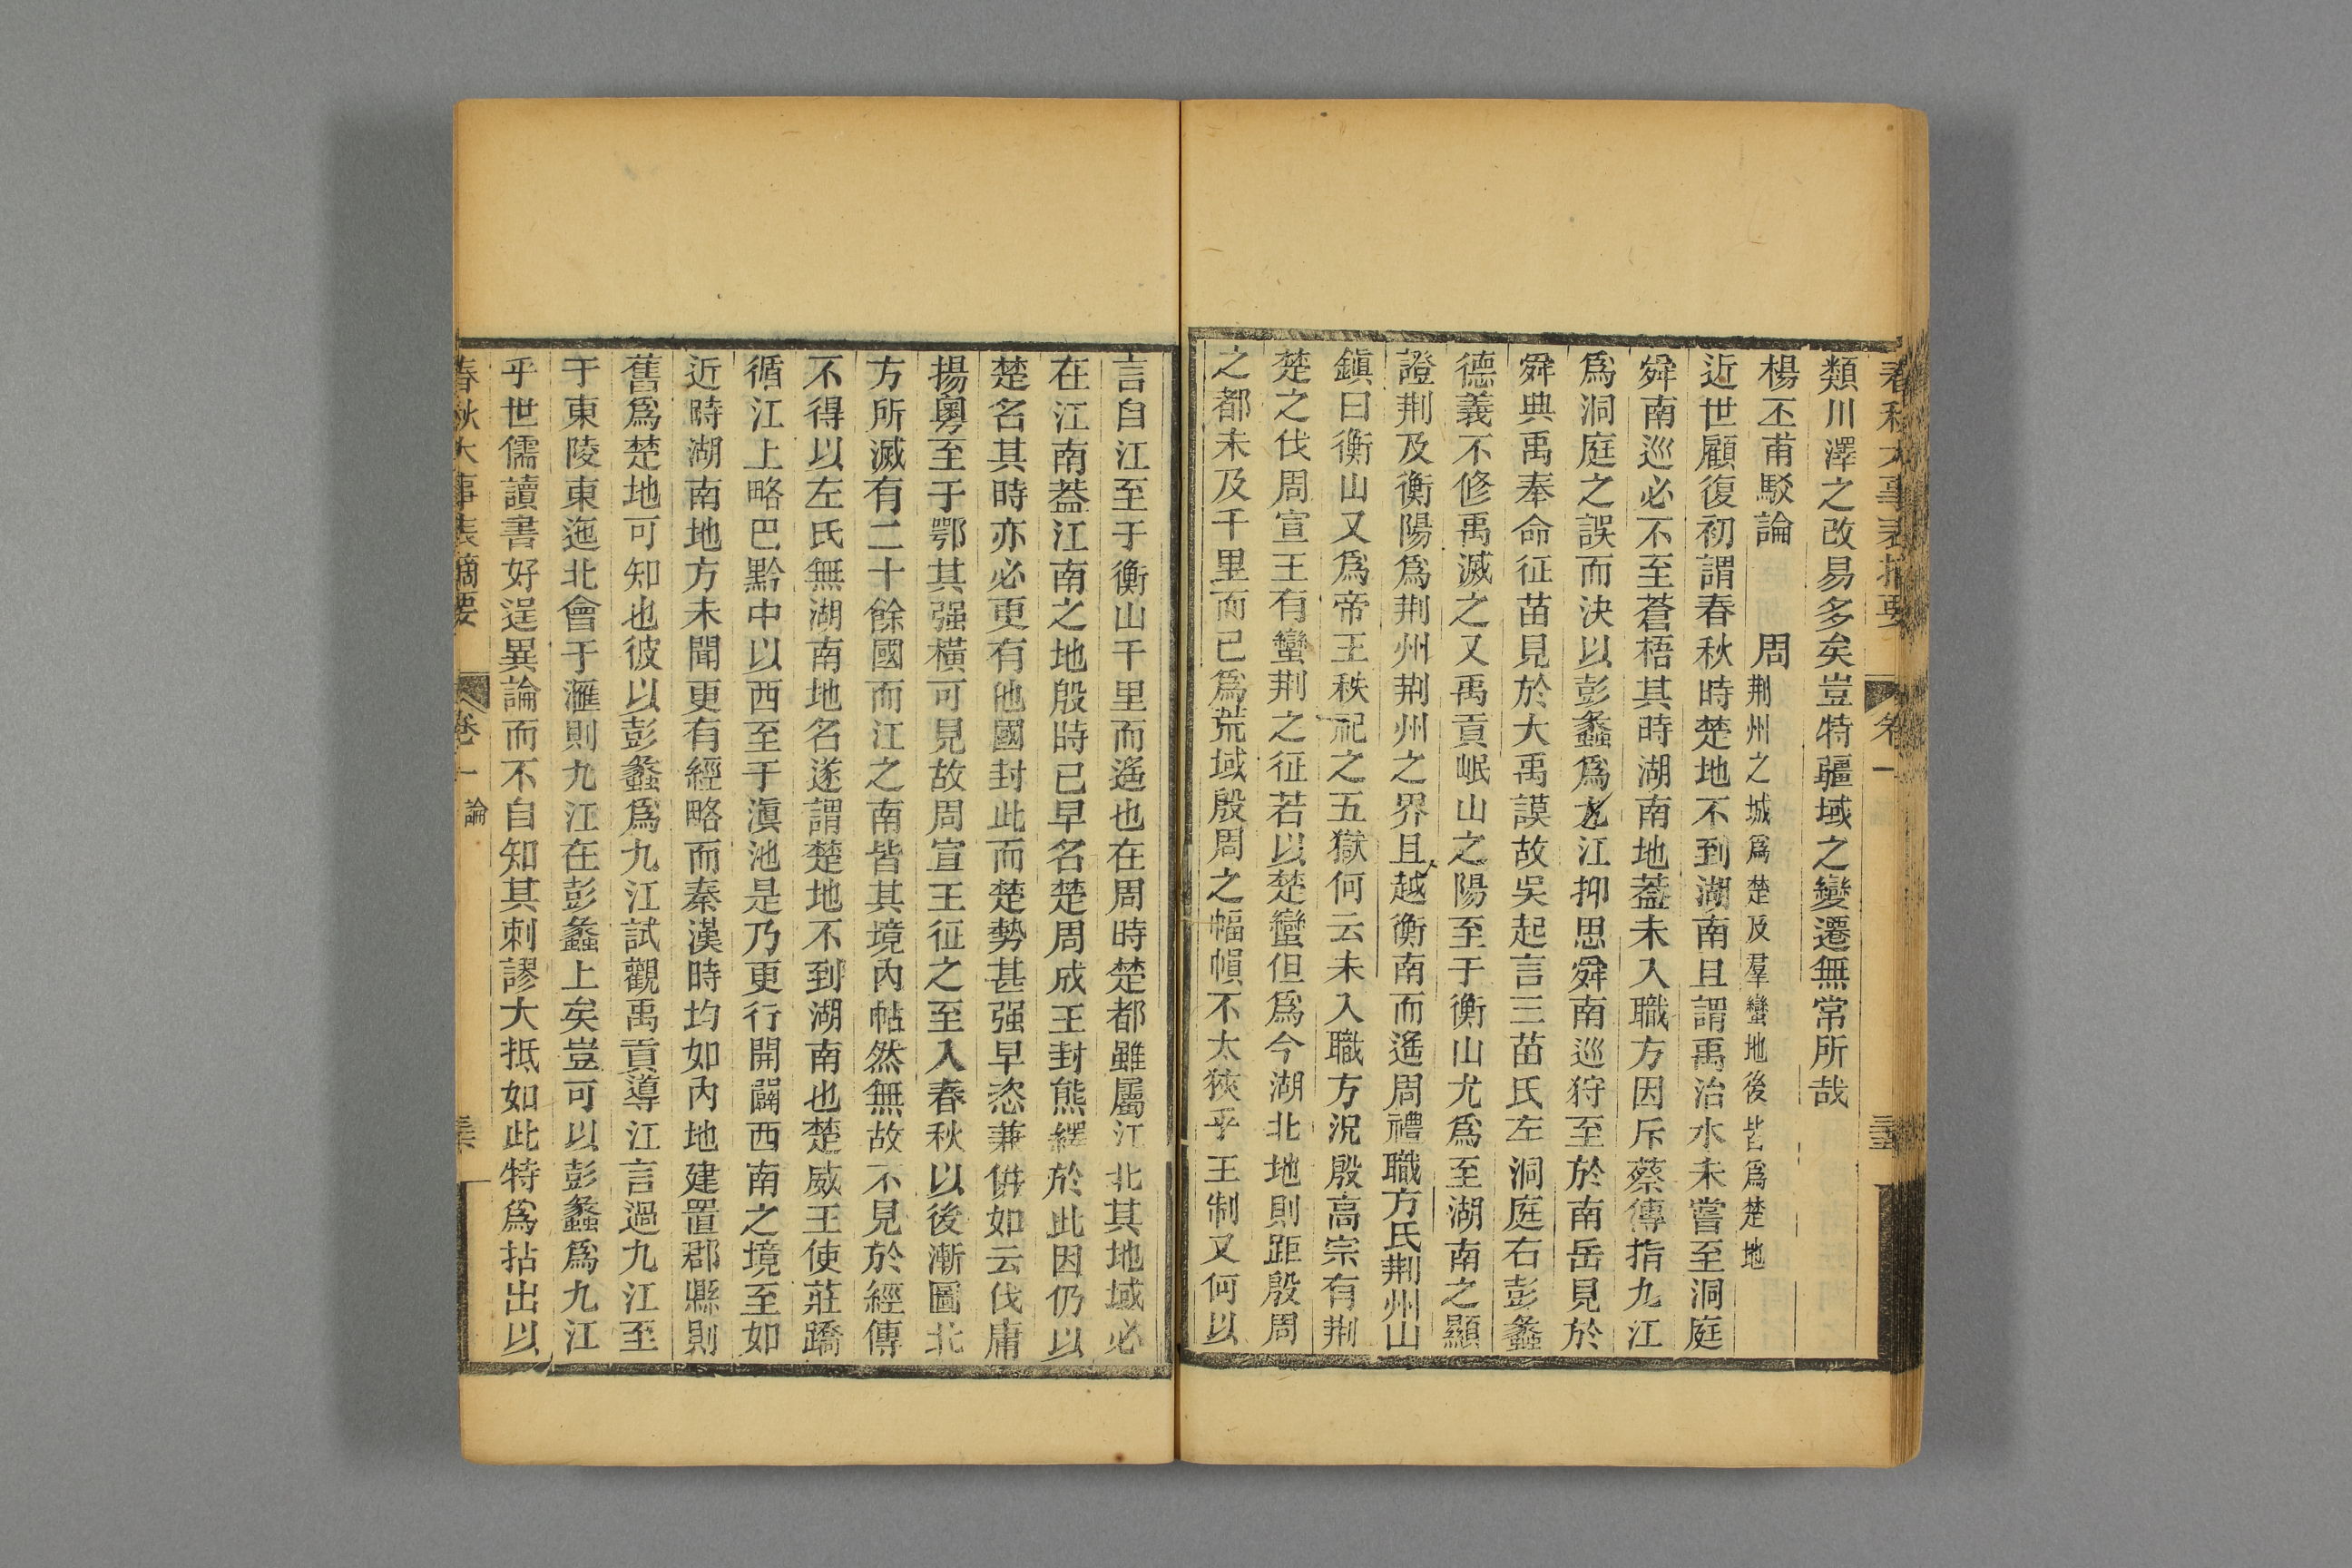 春秋大事表摘要 卷一
類川澤之改易多矣豈特疆域之變遷無常所哉
楊丕甫駁論 周荆州之城爲楚及羣蠻地後皆爲楚地
近世顧復初謂春秋時楚地不到湖南且謂禹治水未嘗至洞庭
舜南巡必不至蒼梧其時湖南地葢未入職方因斥蔡傳指九江
爲洞庭之誤而決以彭蠡爲九江抑思舜南巡狩至於南岳見於
舜典禹奉命征苗見於大禹謨故吳起言三苗氏左洞庭右彭蠡
德義不修禹滅之又禹貢岷山之陽至于衡山尤爲至湖南之顯
證荆及衡陽爲荆州荆州之界且越衡南而遙周禮職方氏荆州山
鎮曰衡山又爲帝王秩祀之五獄何云未入職方況殷高宗有荆
楚之伐周宣王有蠻荆之征若以楚蠻但爲今湖北地則距殷周
之都未及千里而已爲荒域殷周之幅幀不太狹乎王制又何以
言自江至于衡山千里而遙也在周時楚都雖屬江北其地域必
在江南葢江南之地殷時已早名楚周成王封熊繹於此因仍以
楚名其時亦必更有他國封此而楚勢甚强早恣兼併如云伐庸
揚粵至于鄂其强橫可見故周宣王征之至入春秋以後漸圖北
方所滅有二十餘國而江之南皆其境內帖然無故不見於經傳
不得以左氏無湖南地名遂謂楚地不到湖南也楚威王使莊蹻
循江上略巴黔中以西至于滇池是乃更行開闢西南之境至如
近時湖南地方未聞更有經略而秦漢時均如內地建置郡縣則
舊爲楚地可知也彼以彭蠡爲九江試觀禹貢導江言過九江至
于東陵東迤北會于滙則九江在彭蠡上矣豈可以彭蠡爲九江
乎世儒讀書好逞異論而不自知其刺謬大抵如此特爲拈出以
春秋大事表摘要 卷一 論